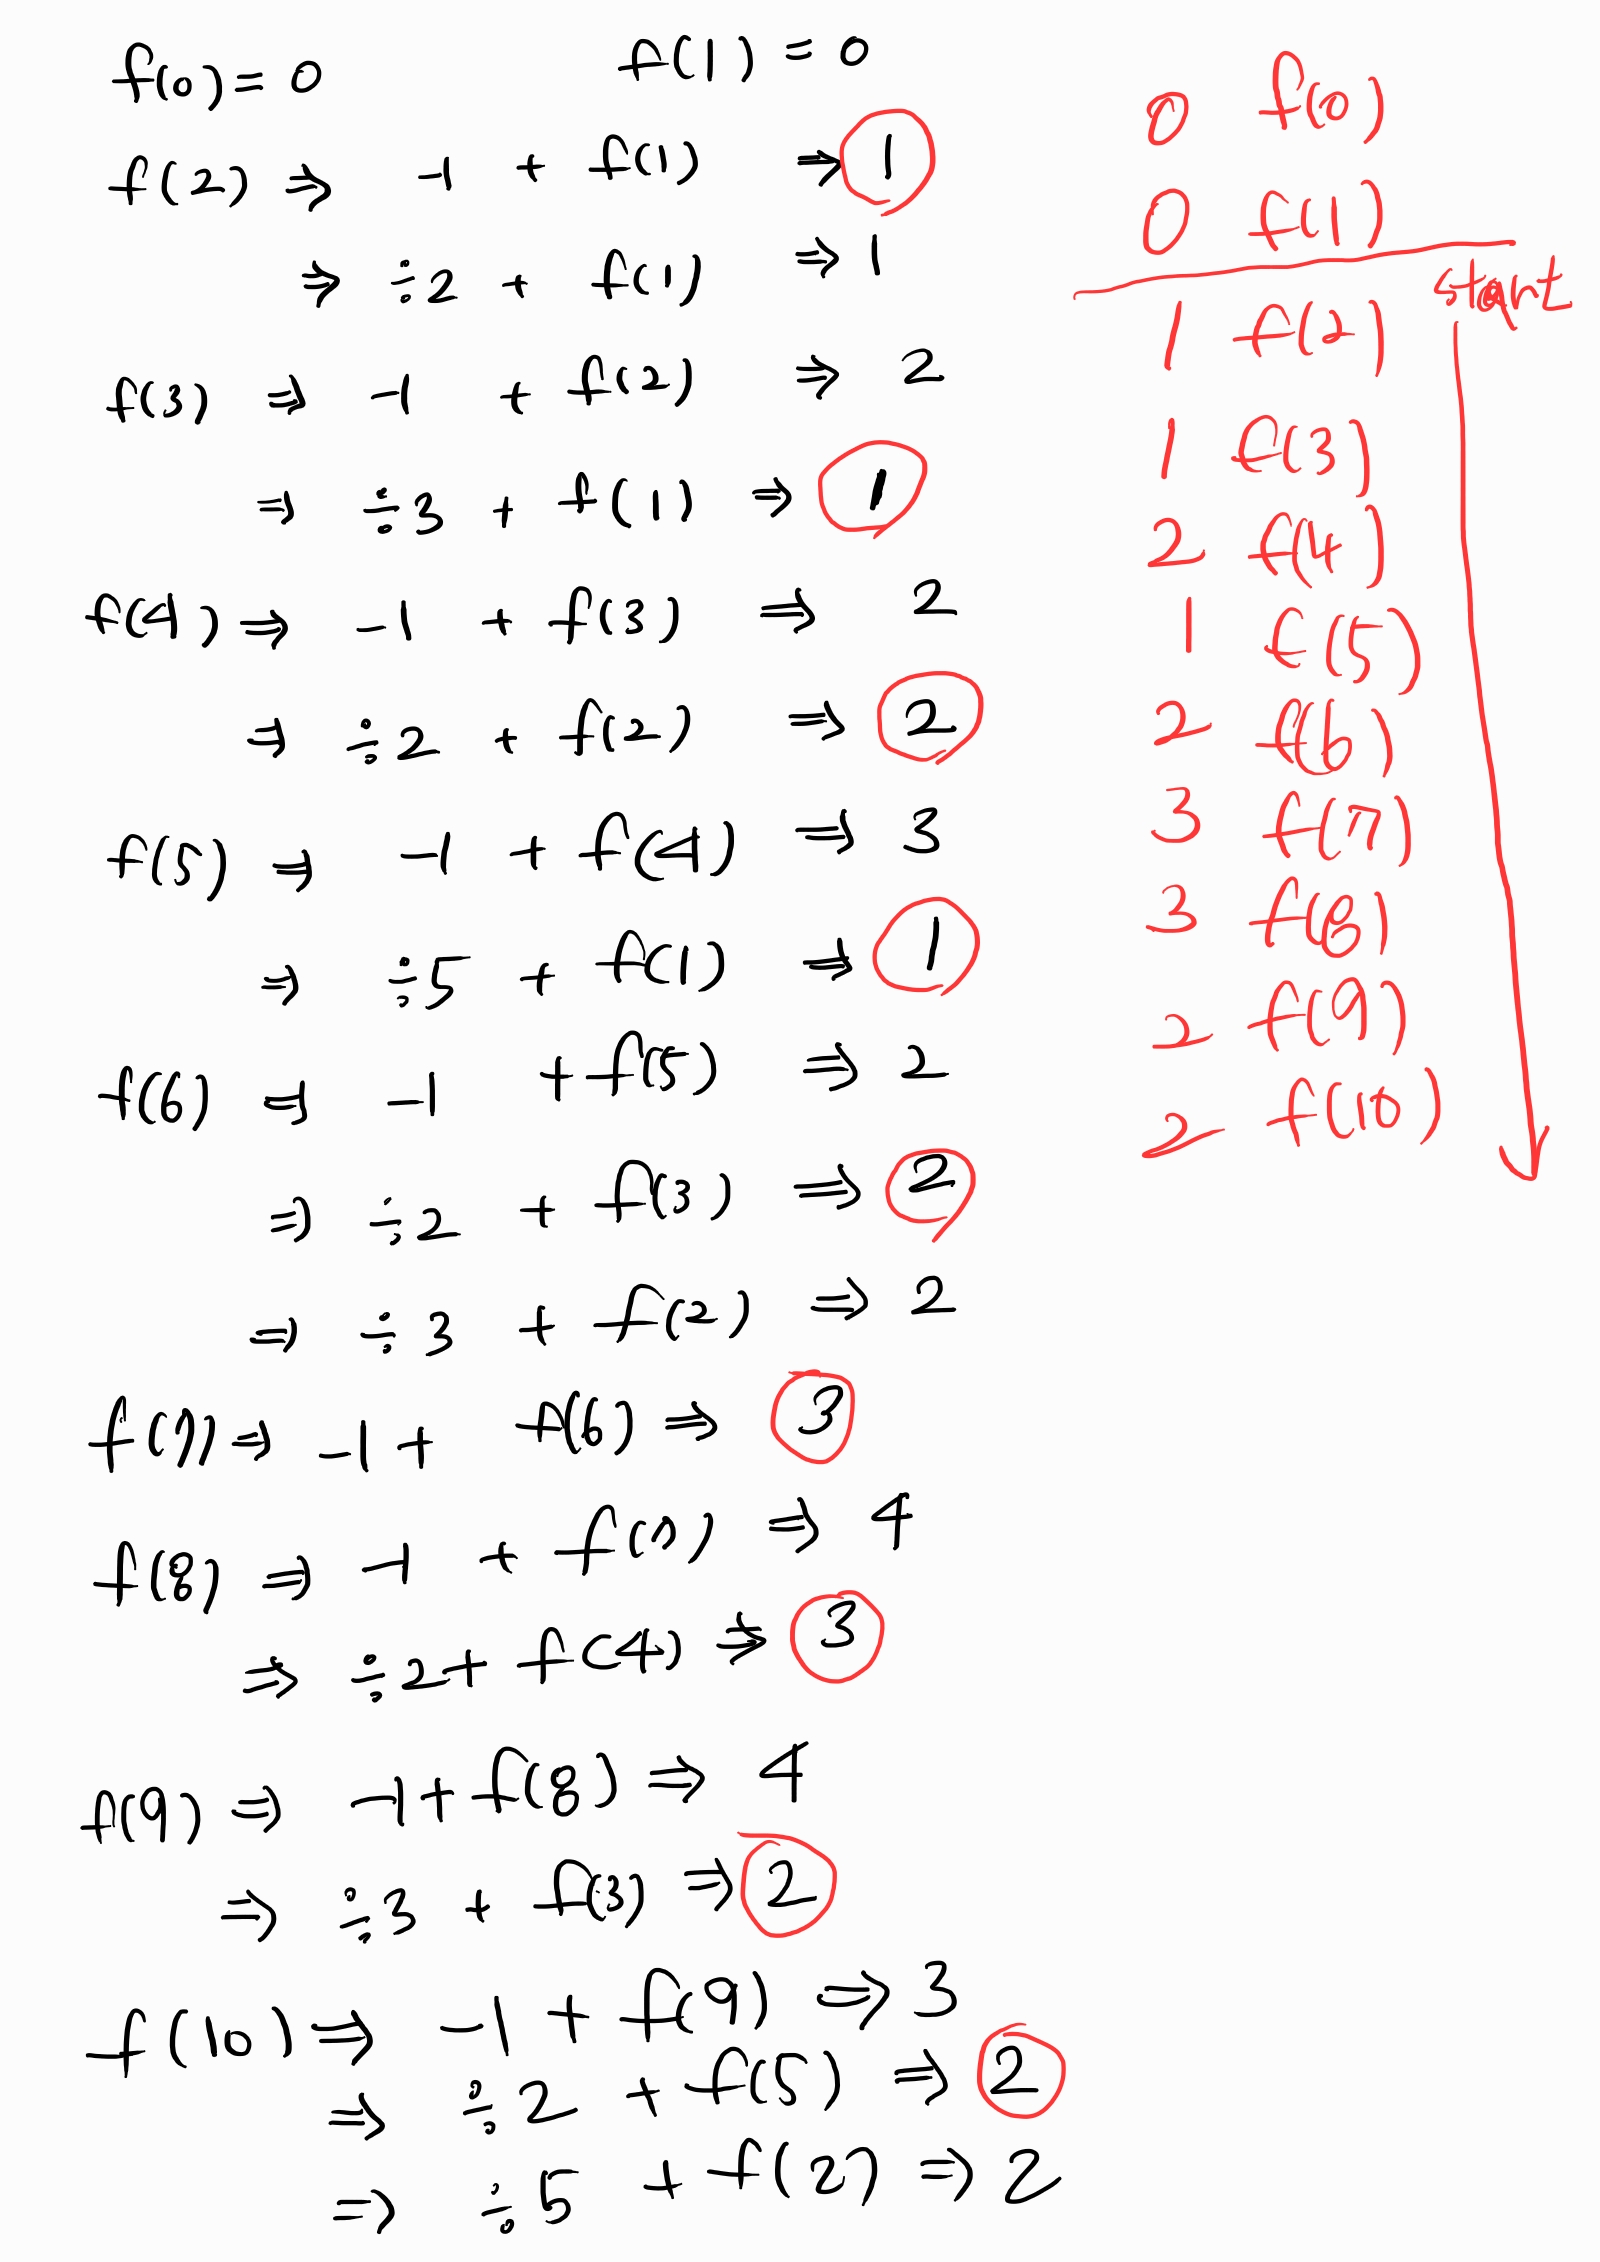 f(0) = 0
f(1) = 0
f(2) ⇒ -1 + f(1) ⇒ 1
⇒ ÷2 + f(1) ⇒ 1
f(3) ⇒ -1 + f(2) ⇒ 2
⇒ ÷3 + f(1) ⇒ 1
f(4) ⇒ -1 + f(3) ⇒ 2
⇒ ÷2 + f(2) ⇒ 2
f(5) ⇒ -1 + f(4) ⇒ 3
⇒ ÷5 + f(1) ⇒ 1
f(6) ⇒ -1 + f(5) ⇒ 2
⇒ ÷2 + f(3) ⇒ 2
⇒ ÷3 + f(2) ⇒ 2
f(7) ⇒ -1 + f(6) ⇒ 3
f(8) ⇒ -1 + f(7) ⇒ 4
⇒ ÷2 + f(4) ⇒ 3
f(9) ⇒ -1 + f(8) ⇒ 4
⇒ ÷3 + f(3) ⇒ 2
f(10) ⇒ -1 + f(9) ⇒ 3
⇒ ÷2 + f(5) ⇒ 2
⇒ ÷5 + f(2) ⇒ 2
0 f(0)
0 f(1)
start
1 f(2)
1 f(3)
2 f(4)
1 f(5)
2 f(6)
3 f(7)
3 f(8)
2 f(9)
2 f(10)